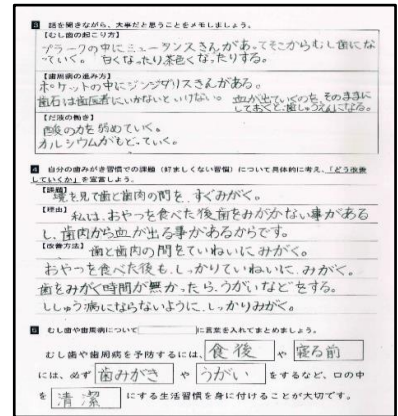 3 話を聞きながら、大事だと思うことをメモしましょう。
【むし歯の起こり方】
プラークの中にミュータンスきんがあってそこからむし歯にな
っていく。 白くなったり茶色くなったりする。
【歯周病の進み方】
ポケットの中にジンジバリスきんがある。
歯石は歯医者にいかないといけない。 血が出ていくのを、そのままに
しておくと、歯しゅうえんになる。
【だ液の働き】
酸の力を弱めていく。
カルシウムがもどっていく。
4 自分の歯みがき習慣での課題（好ましくない習慣）について具体的に考え、「どう改善
していくか」を宣言しよう。
【課題】
鏡を見て歯と歯肉の間を、すぐみがく。
【理由】
私は、おやつを食べた後歯をみがかない事がある
し、歯肉から血が出る事があるからです。
【改善方法】
歯と歯肉の間をていねいに、みがく。
おやつを食べた後も、しっかりていねいに、みがく。
歯をみがく時間が無かったら、うがいなどをする。
ししゅう病にならないように、しっかりみがく。
5 むし歯や歯周病について に言葉を入れてまとめましょう。
むし歯や歯周病を予防するには、 食後 や 寝る前
には、必ず 歯みがき や うがい をするなど、口の中
を 清潔 にする生活習慣を身に付けることが大切です。